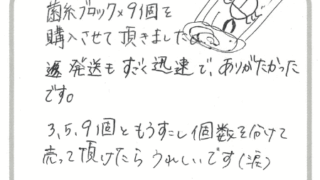 菌糸ブロック×9個を
購入させて頂きましたm
発送もすごく迅速で、ありがたかった
です。
3,5,9個ともうすこし個数を分けて
売って頂けたらうれしいです(涙)